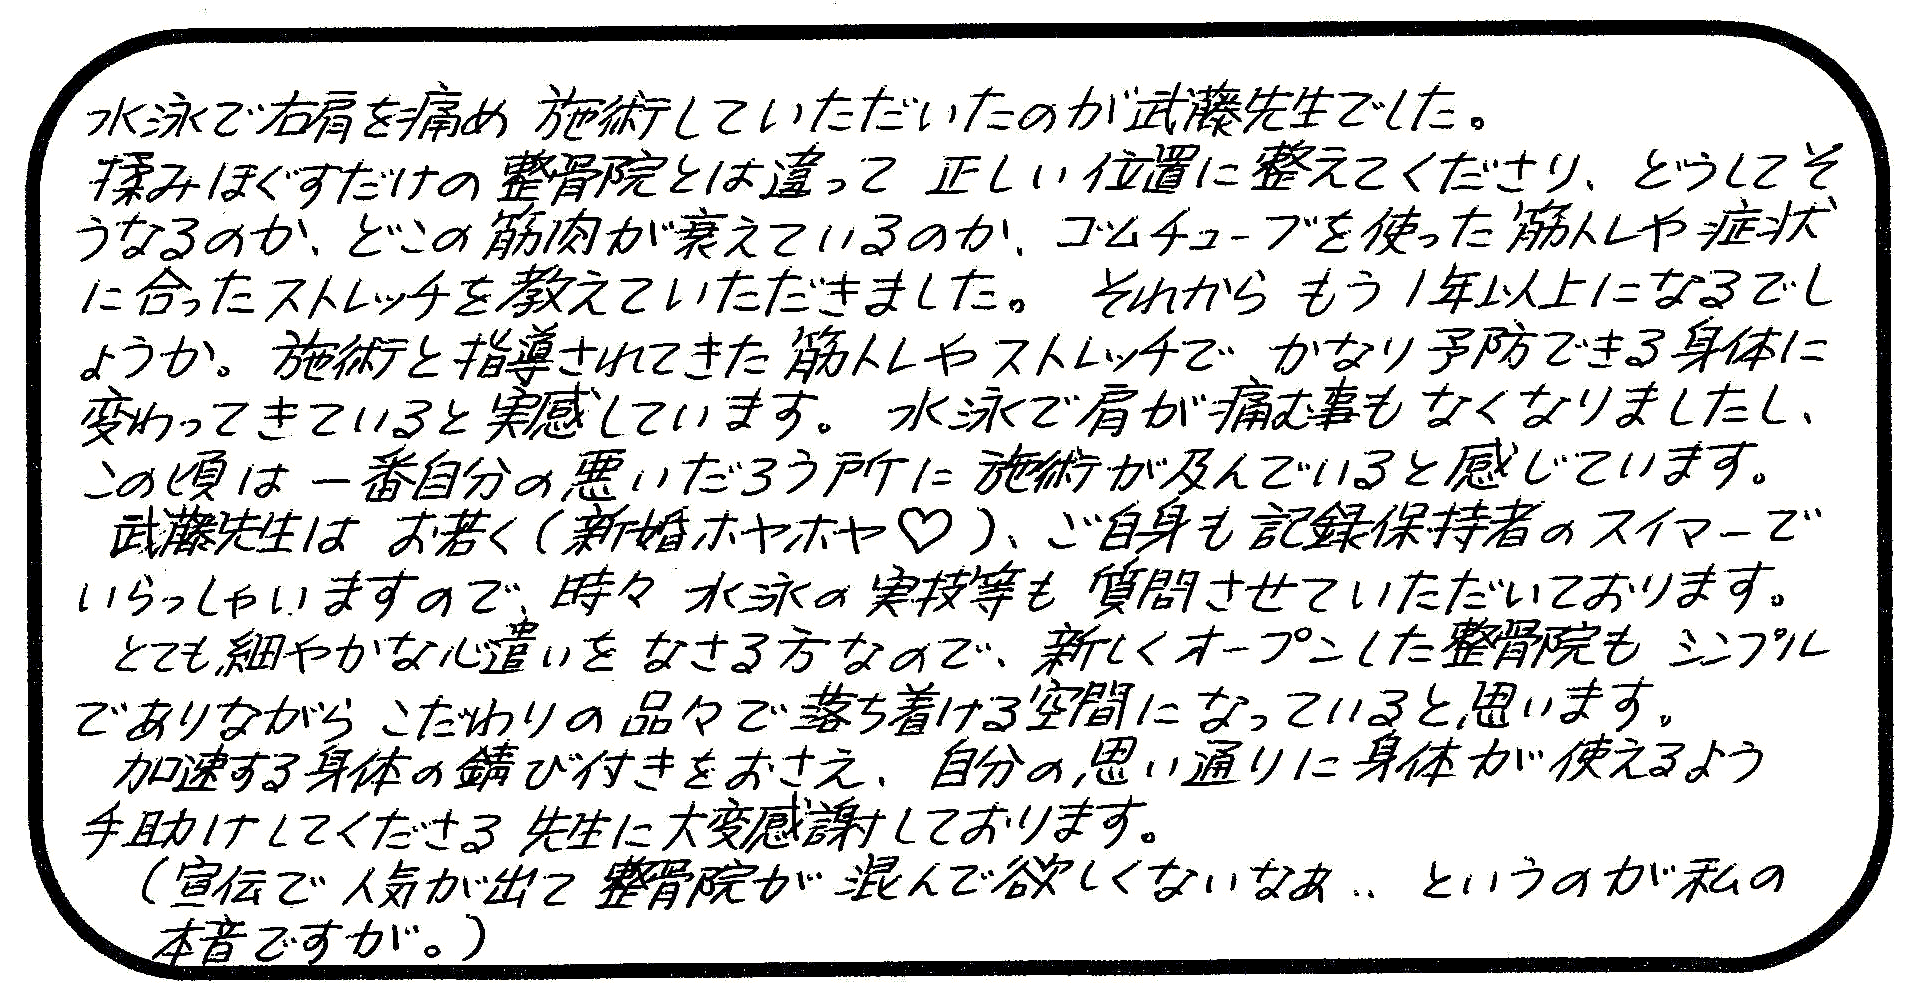 水泳で右肩を痛め 施術していただいたのが武藤先生でした。
揉みほぐすだけの整骨院とは違って 正しい位置に整えてくださり、どうしてそ
うなるのか、どこの筋肉が衰えているのか、ゴムチューブを使った筋トレや症状
に合ったストレッチを教えていただきました。 それから もう1年以上になるでし
ょうか。施術と指導されてきた筋トレやストレッチで かなり予防できる身体に
変わってきていると実感しています。 水泳で肩が痛む事もなくなりましたし、
この頃は 一番自分の悪いだろう所に 施術が及んでいると感じています。
武藤先生は お若く(新婚ホヤホヤ♡)、ご自身も記録保持者のスイマーで
いらっしゃいますので、時々 水泳の実技等も 質問させていただいております。
とても細やかな心遣いを なさる方なので、新しくオープンした整骨院も シンプル
でありながら こだわりの品々で落ち着ける空間になっていると思います。
加速する身体の錆び付きをおさえ、自分の思い通りに身体が使えるよう
手助けしてくださる 先生に大変感謝しております。
(宣伝で人気が出て 整骨院が 混んで欲しくないなあ‥ というのが私の
本音ですが。)